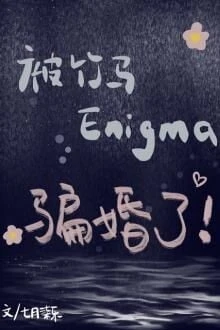 被竹马
Enigma
骗婚了!
文/七月